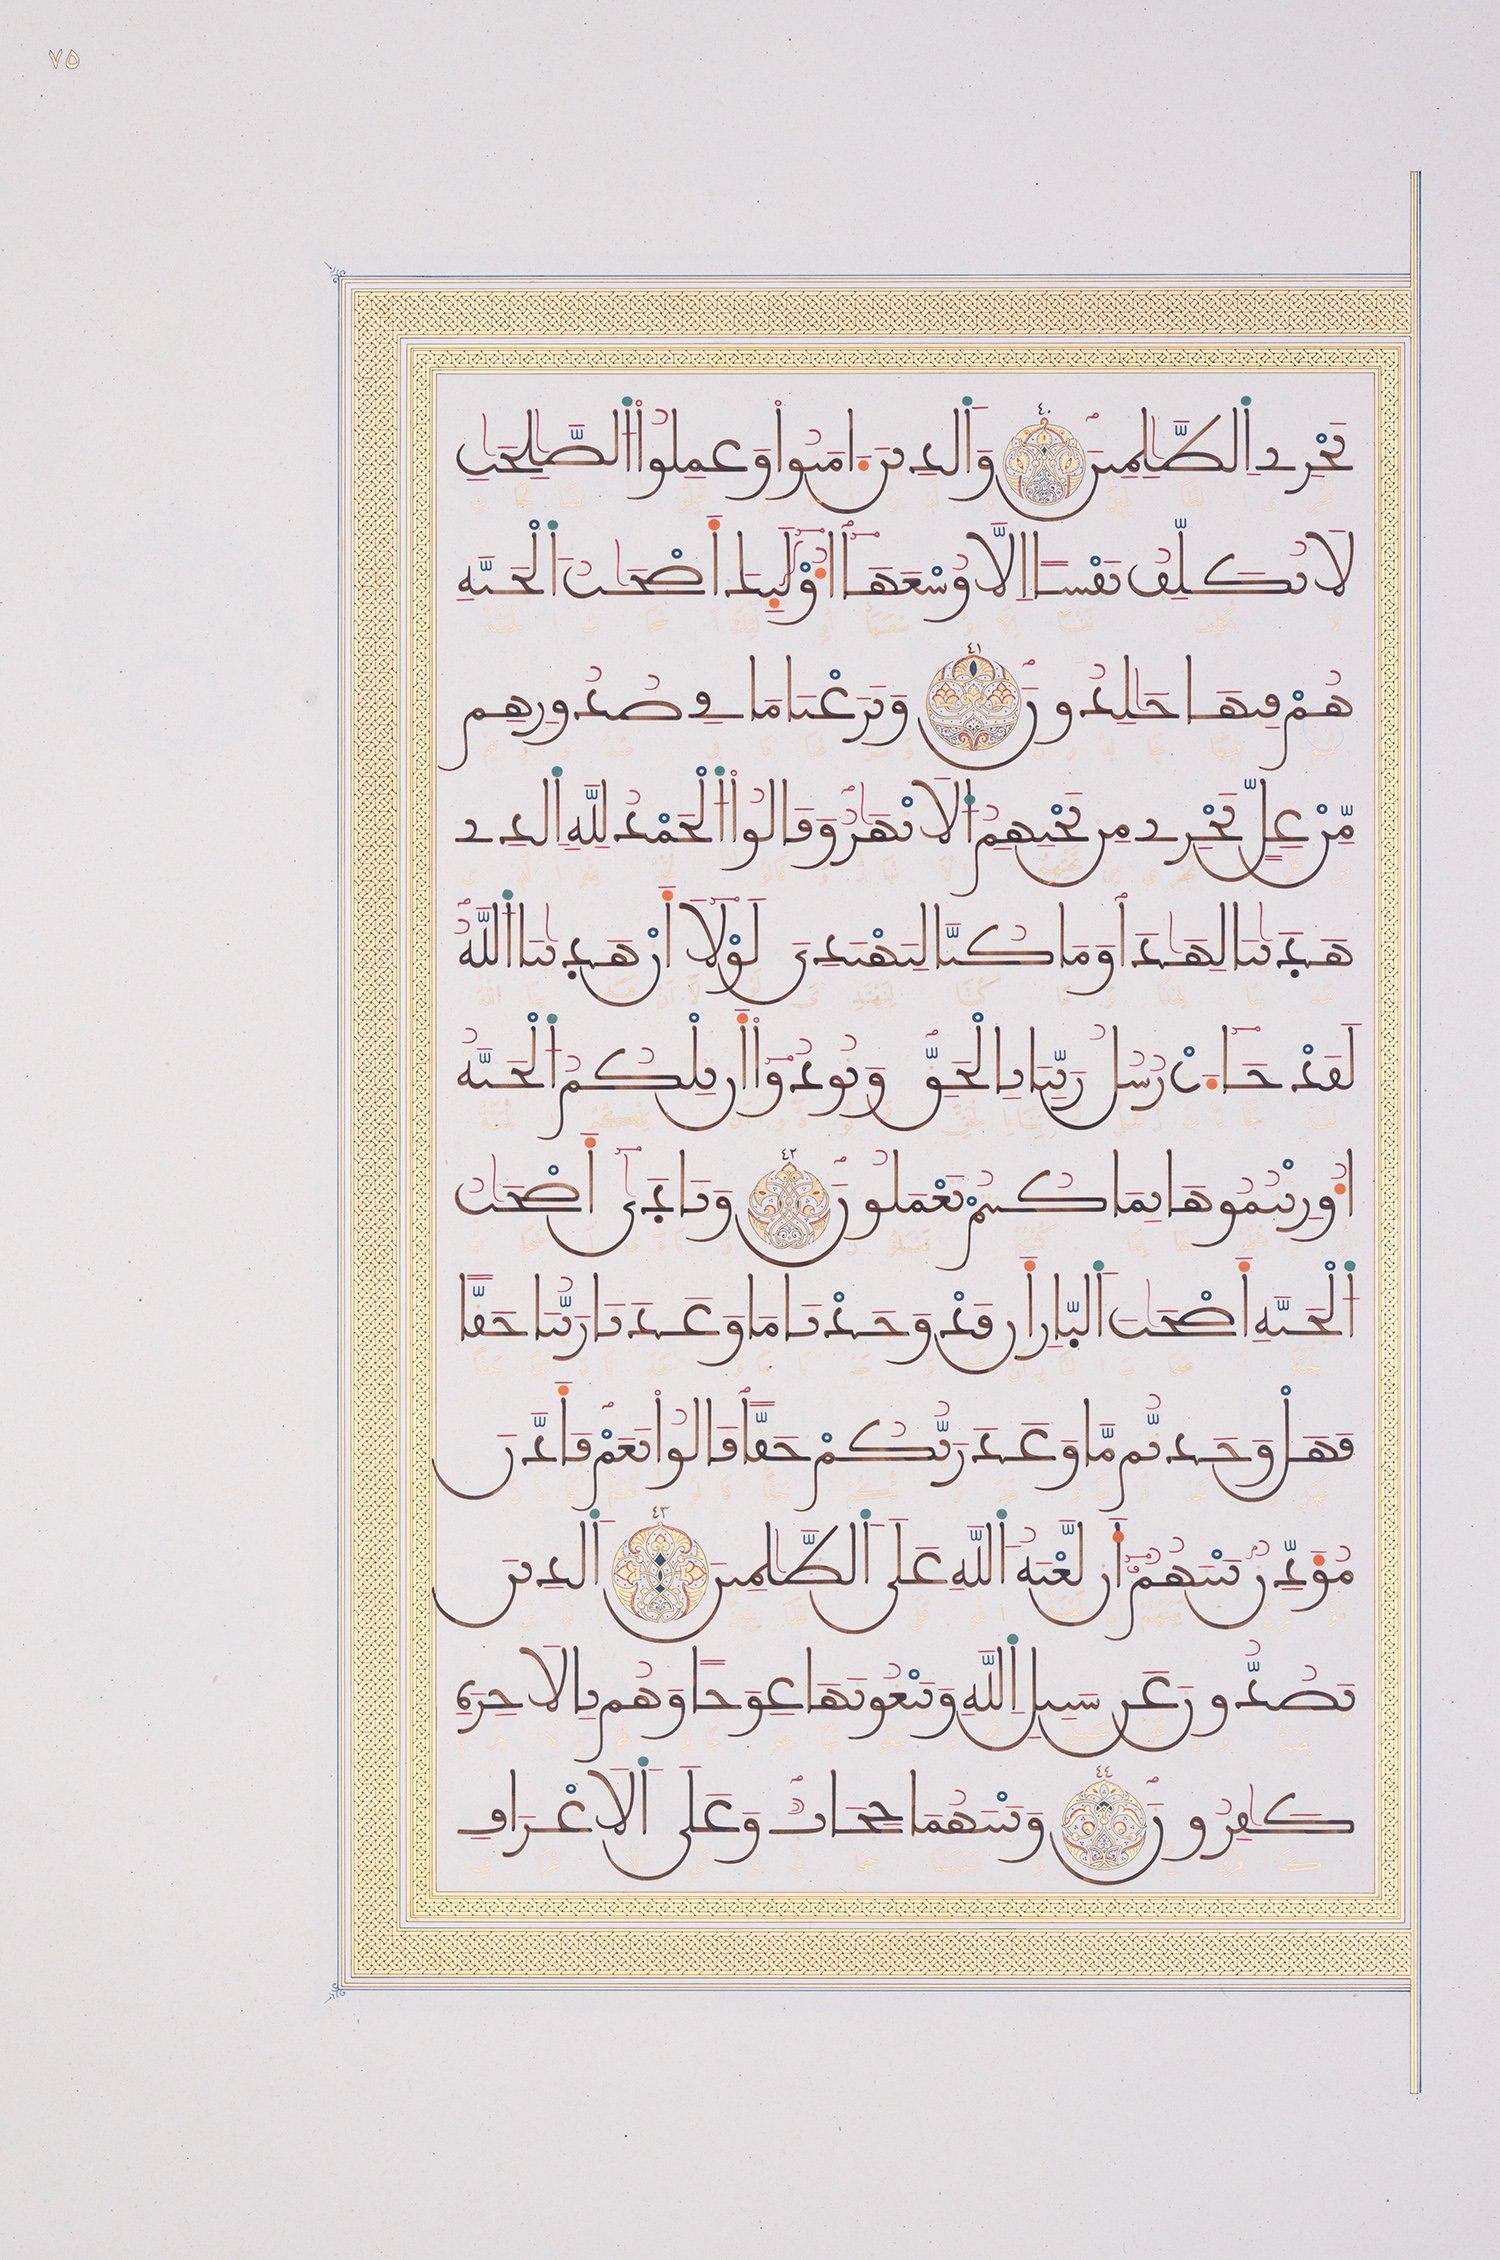 ٧٥
نَجْزِى ٱلظَّٰلِمِينَ ٤٠ وَٱلَّذِينَ ءَامَنُوا۟ وَعَمِلُوا۟ ٱلصَّٰلِحَٰتِ
لَا نُكَلِّفُ نَفْسًا إِلَّا وُسْعَهَآ أُو۟لَٰٓئِكَ أَصْحَٰبُ ٱلْجَنَّةِ
هُمْ فِيهَا خَٰلِدُونَ ٤١ وَنَزَعْنَا مَا فِى صُدُورِهِم
مِّنْ غِلٍّ تَجْرِى مِن تَحْتِهِمُ ٱلْأَنْهَٰرُ وَقَالُوا۟ ٱلْحَمْدُ لِلَّهِ ٱلَّذِى
هَدَىٰنَا لِهَٰذَا وَمَا كُنَّا لِنَهْتَدِىَ لَوْلَآ أَنْ هَدَىٰنَا ٱللَّهُ
لَقَدْ جَآءَتْ رُسُلُ رَبِّنَا بِٱلْحَقِّ وَنُودُوٓا۟ أَن تِلْكُمُ ٱلْجَنَّةُ
أُورِثْتُمُوهَا بِمَا كُنتُمْ تَعْمَلُونَ ٤٢ وَنَادَىٰٓ أَصْحَٰبُ
ٱلْجَنَّةِ أَصْحَٰبَ ٱلنَّارِ أَن قَدْ وَجَدْنَا مَا وَعَدَنَا رَبُّنَا حَقًّا
فَهَلْ وَجَدتُّم مَّا وَعَدَ رَبُّكُمْ حَقًّا قَالُوا۟ نَعَمْ فَأَذَّنَ
مُؤَذِّنٌ بَيْنَهُمْ أَن لَّعْنَةُ ٱللَّهِ عَلَى ٱلظَّٰلِمِينَ ٤٣ ٱلَّذِينَ
يَصُدُّونَ عَن سَبِيلِ ٱللَّهِ وَيَبْغُونَهَا عِوَجًا وَهُم بِٱلْأَخِرَةِ
كَٰفِرُونَ ٤٤ وَبَيْنَهُمَا حِجَابٌ وَعَلَى ٱلْأَعْرَافِ